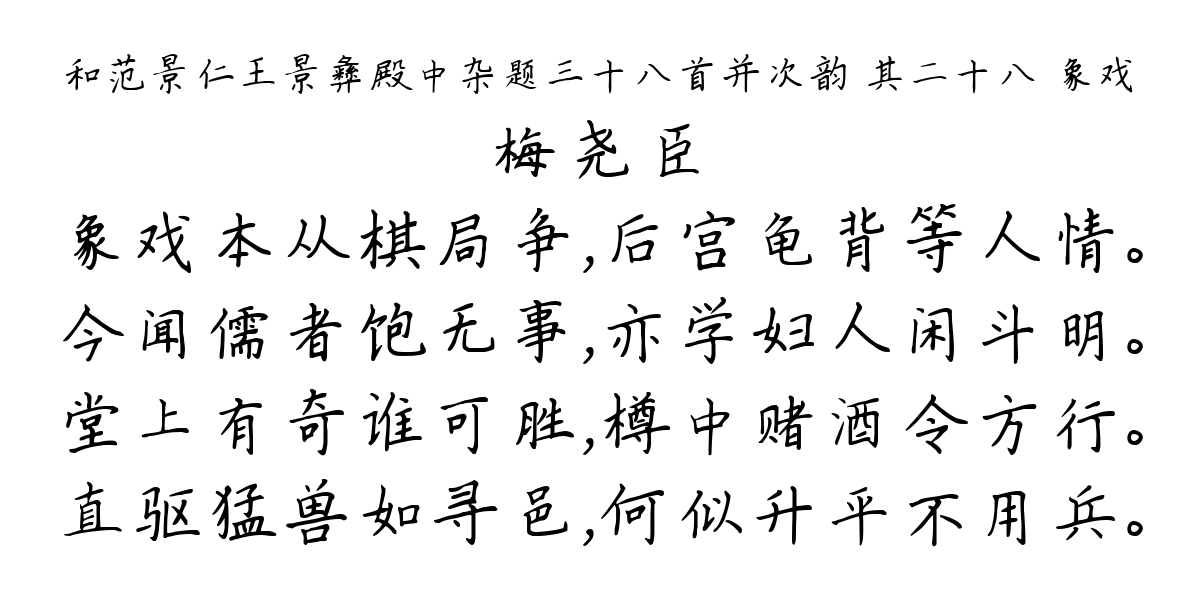 和范景仁王景彝殿中杂题三十八首并次韵 其二十八 象戏
梅尧臣
象戏本从棋局争,后宫龟背等人情。
今闻儒者饱无事,亦学妇人闲斗明。
堂上有奇谁可胜,樽中赌酒令方行。
直驱猛兽如寻邑,何似升平不用兵。